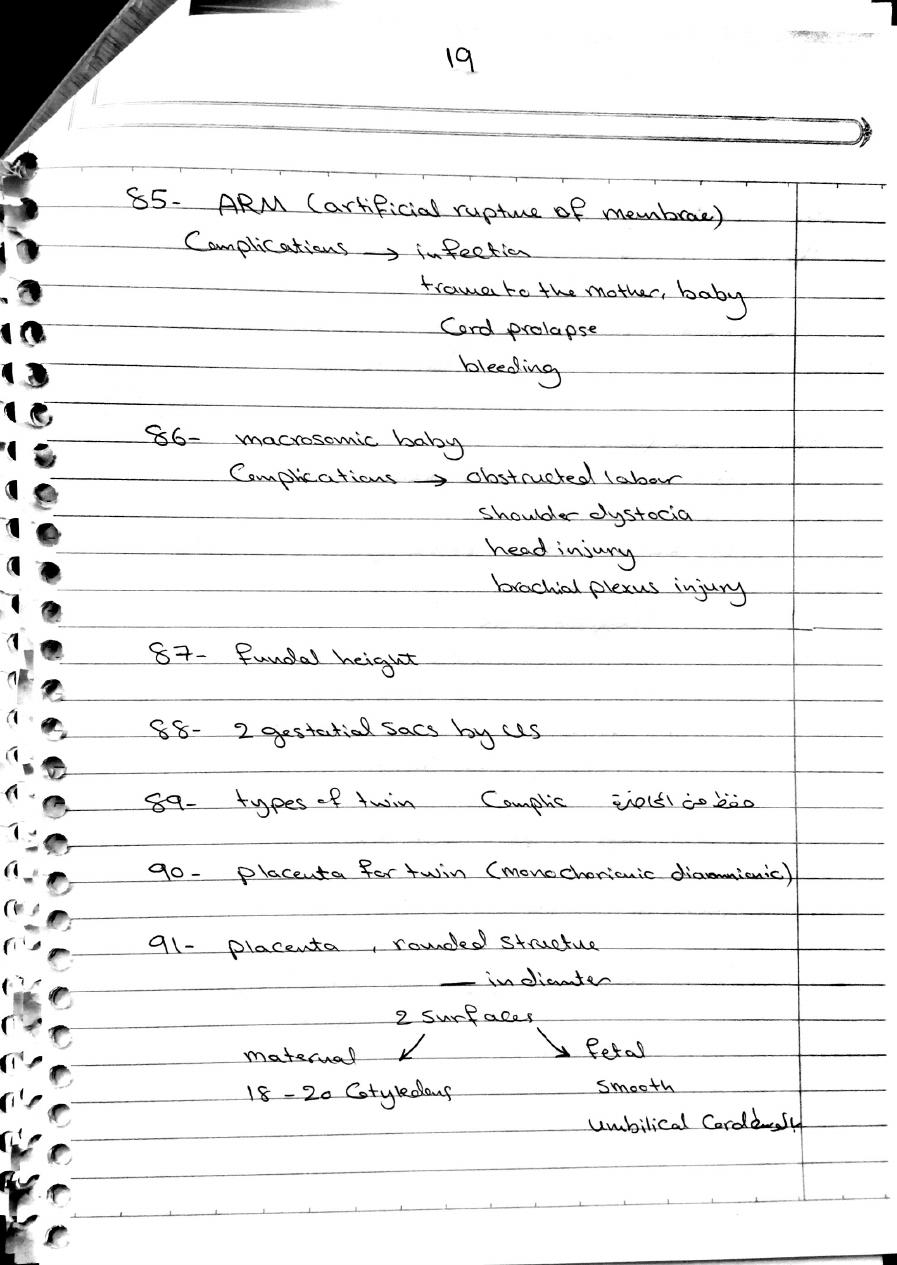 19
85- ARM (artificial rupture of membrae)
Complications → infection
trauma to the mother, baby
Cord prolapse
bleeding
86- macrosomic baby
Complications → obstructed labour
shoulder dystocia
head injury
brachial plexus injury
87- fundal height
88- 2 gestatial sacs by US
89- types of twin Complic حفظ من المحاضرة
90- placenta for twin (monochorionic diaomnionic)
91- placenta, rounded structue
— in diamter
2 surfaces
maternal ↙ ↘ fetal
18 - 20 Cotyledons smooth
umbilical Cord بالوسط